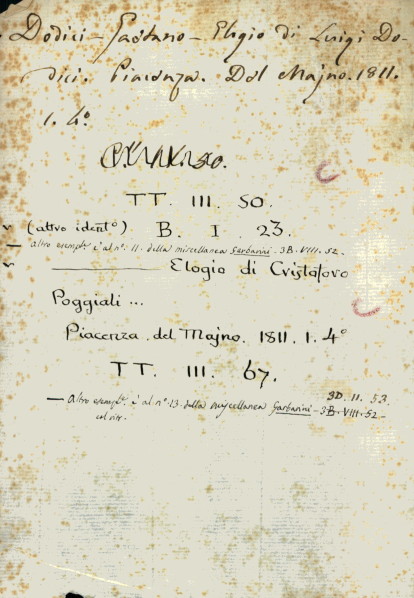 Dodici - Gaetano - Elogio di Luigi Do-
dici. Piacenza. Del Majno. 1811.
1. 4º
TT. III. 50.
(altro identº) B. I. 23.
altro esempl. è al nº 11 della miscellanea Garbarini - 3B. VIII. 52.
Elogio di Cristoforo
Poggiali ...
Piacenza. del Majno. 1811. 1. 4º
TT. III. 67.
3D. 11. 53.
— Altro esempl. è al nº 13 della miscellanea Garbarini - 3B. VIII. 52 -
col ritr.